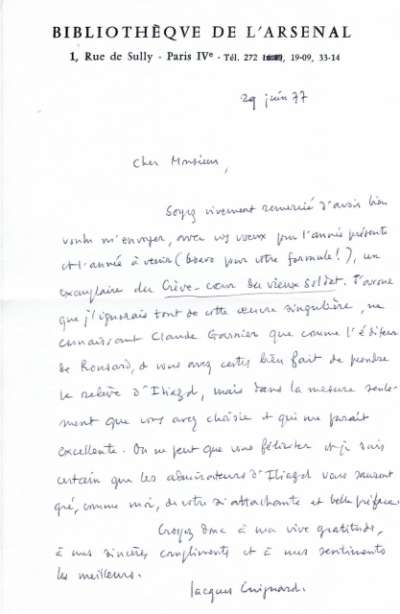 BIBLIOTHÈQVE DE L'ARSENAL
1, Rue de Sully - Paris IVe - Tél. 272 19-09, 33-14
29 juin 77
Cher Monsieur,
Soyez vivement remercié d'avoir bien
voulu m'envoyer, avec vos vœux pour l'année présente
et l'année à venir (bravo pour votre formule!), un
exemplaire du Crève-cœur du vieux soldat. J'avoue
que j'ignorais tout de cette œuvre singulière, ne
connaissant Claude Garnier que comme l'éditeur
de Ronsard, et vous avez certes bien fait de prendre
la relève d'Iliazd, mais dans la mesure seule-
ment que vous avez choisie et qui me paraît
excellente. On ne peut que vous féliciter et je suis
certain que les admirateurs d'Iliazd vous sauront
gré, comme moi, de votre si attachante et belle préface.
Croyez donc à ma vive gratitude,
à mes sincères compliments et à mes sentiments
les meilleurs.
Jacques Guignard.